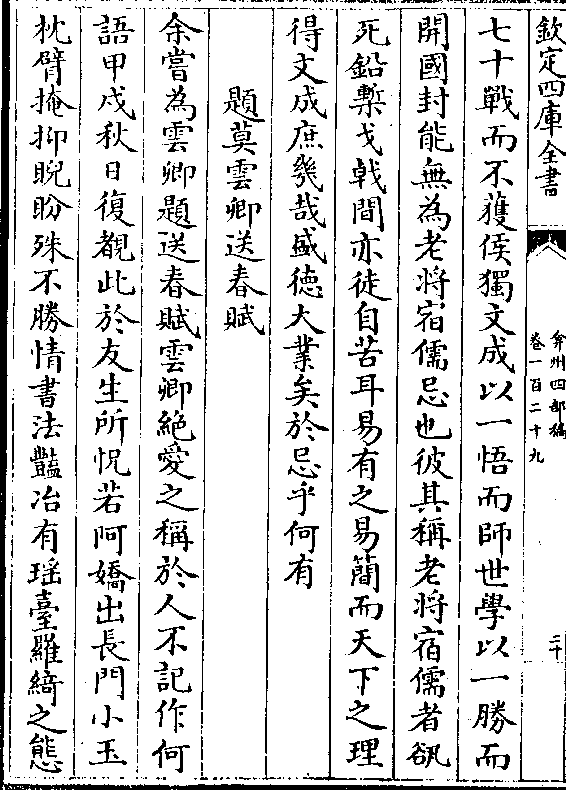 欽定四庫全書
弇州四部稿
卷一百二十九
二十
七十戰而不獲侯獨文成以一悟而師世學以一勝而
開國封能無為老將宿儒忌也彼其稱老將宿儒者矻
死鉛槧戈戟間亦徒自苦耳易有之易簡而天下之理
得文成庶幾哉盛德大業矣於忌乎何有
題莫雲卿送春賦
余嘗為雲卿題送春賦雲卿絕愛之稱於人不記作何
語甲戌秋日復覩此於友生所怳若阿嬌出長門小玉
枕臂掩抑睨盼殊不勝情書法豔冶有瑶臺羅綺之態